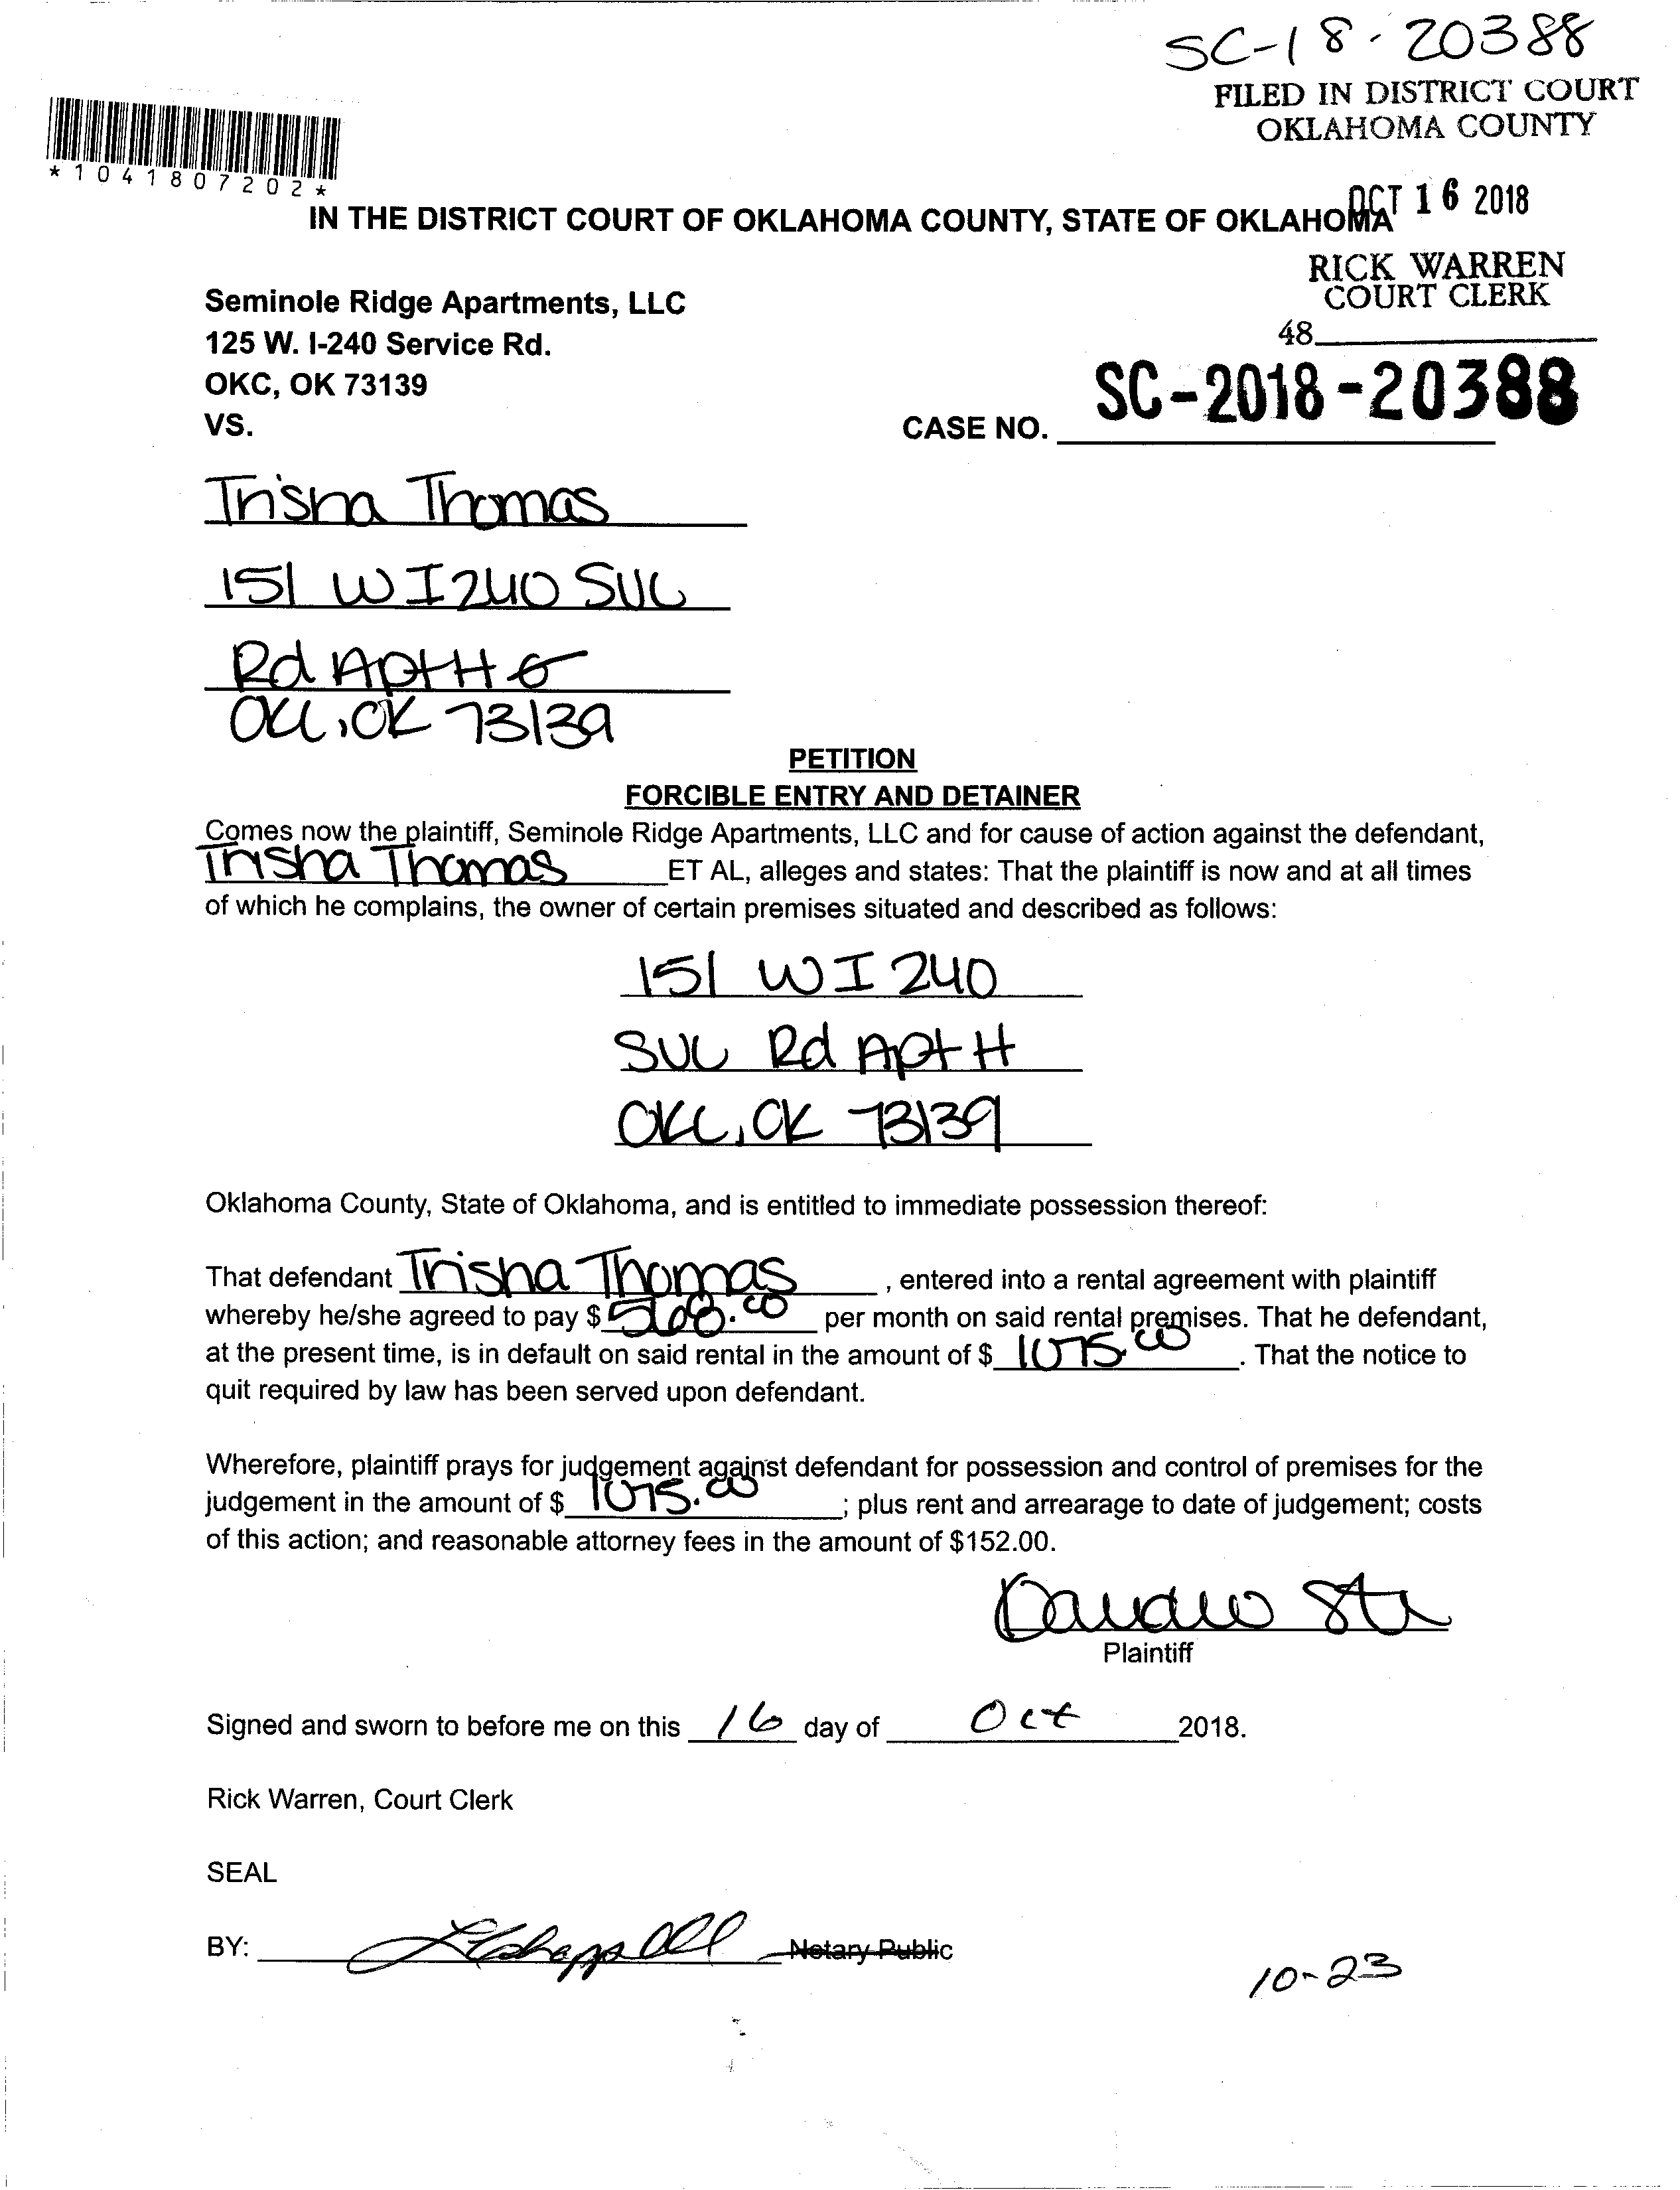 SC-18-20388
FILED IN DISTRICT COURT
OKLAHOMA COUNTY
*1041807202*
OCT 16 2018
IN THE DISTRICT COURT OF OKLAHOMA COUNTY, STATE OF OKLAHOMA
RICK WARREN
COURT CLERK
48
Seminole Ridge Apartments, LLC
125 W. I-240 Service Rd.
OKC, OK 73139
VS.
CASE NO. SC-2018-20388
Trisha Thomas
151 W I 240 SVC
Rd Apt H
OKC, OK 73139
PETITION
FORCIBLE ENTRY AND DETAINER
Comes now the plaintiff, Seminole Ridge Apartments, LLC and for cause of action against the defendant,
Trisha Thomas ET AL, alleges and states: That the plaintiff is now and at all times
of which he complains, the owner of certain premises situated and described as follows:
151 W I 240
SVC Rd Apt H
OKC, OK 73139
Oklahoma County, State of Oklahoma, and is entitled to immediate possession thereof:
That defendant Trisha Thomas, entered into a rental agreement with plaintiff
whereby he/she agreed to pay $ per month on said rental premises. That he defendant,
at the present time, is in default on said rental in the amount of $ . That the notice to
quit required by law has been served upon defendant.
Wherefore, plaintiff prays for judgement against defendant for possession and control of premises for the
judgement in the amount of $ ; plus rent and arrearage to date of judgement; costs
of this action; and reasonable attorney fees in the amount of $152.00.
Plaintiff
Signed and sworn to before me on this 16 day of Oct 2018.
Rick Warren, Court Clerk
SEAL
BY: Notary Public
10-23